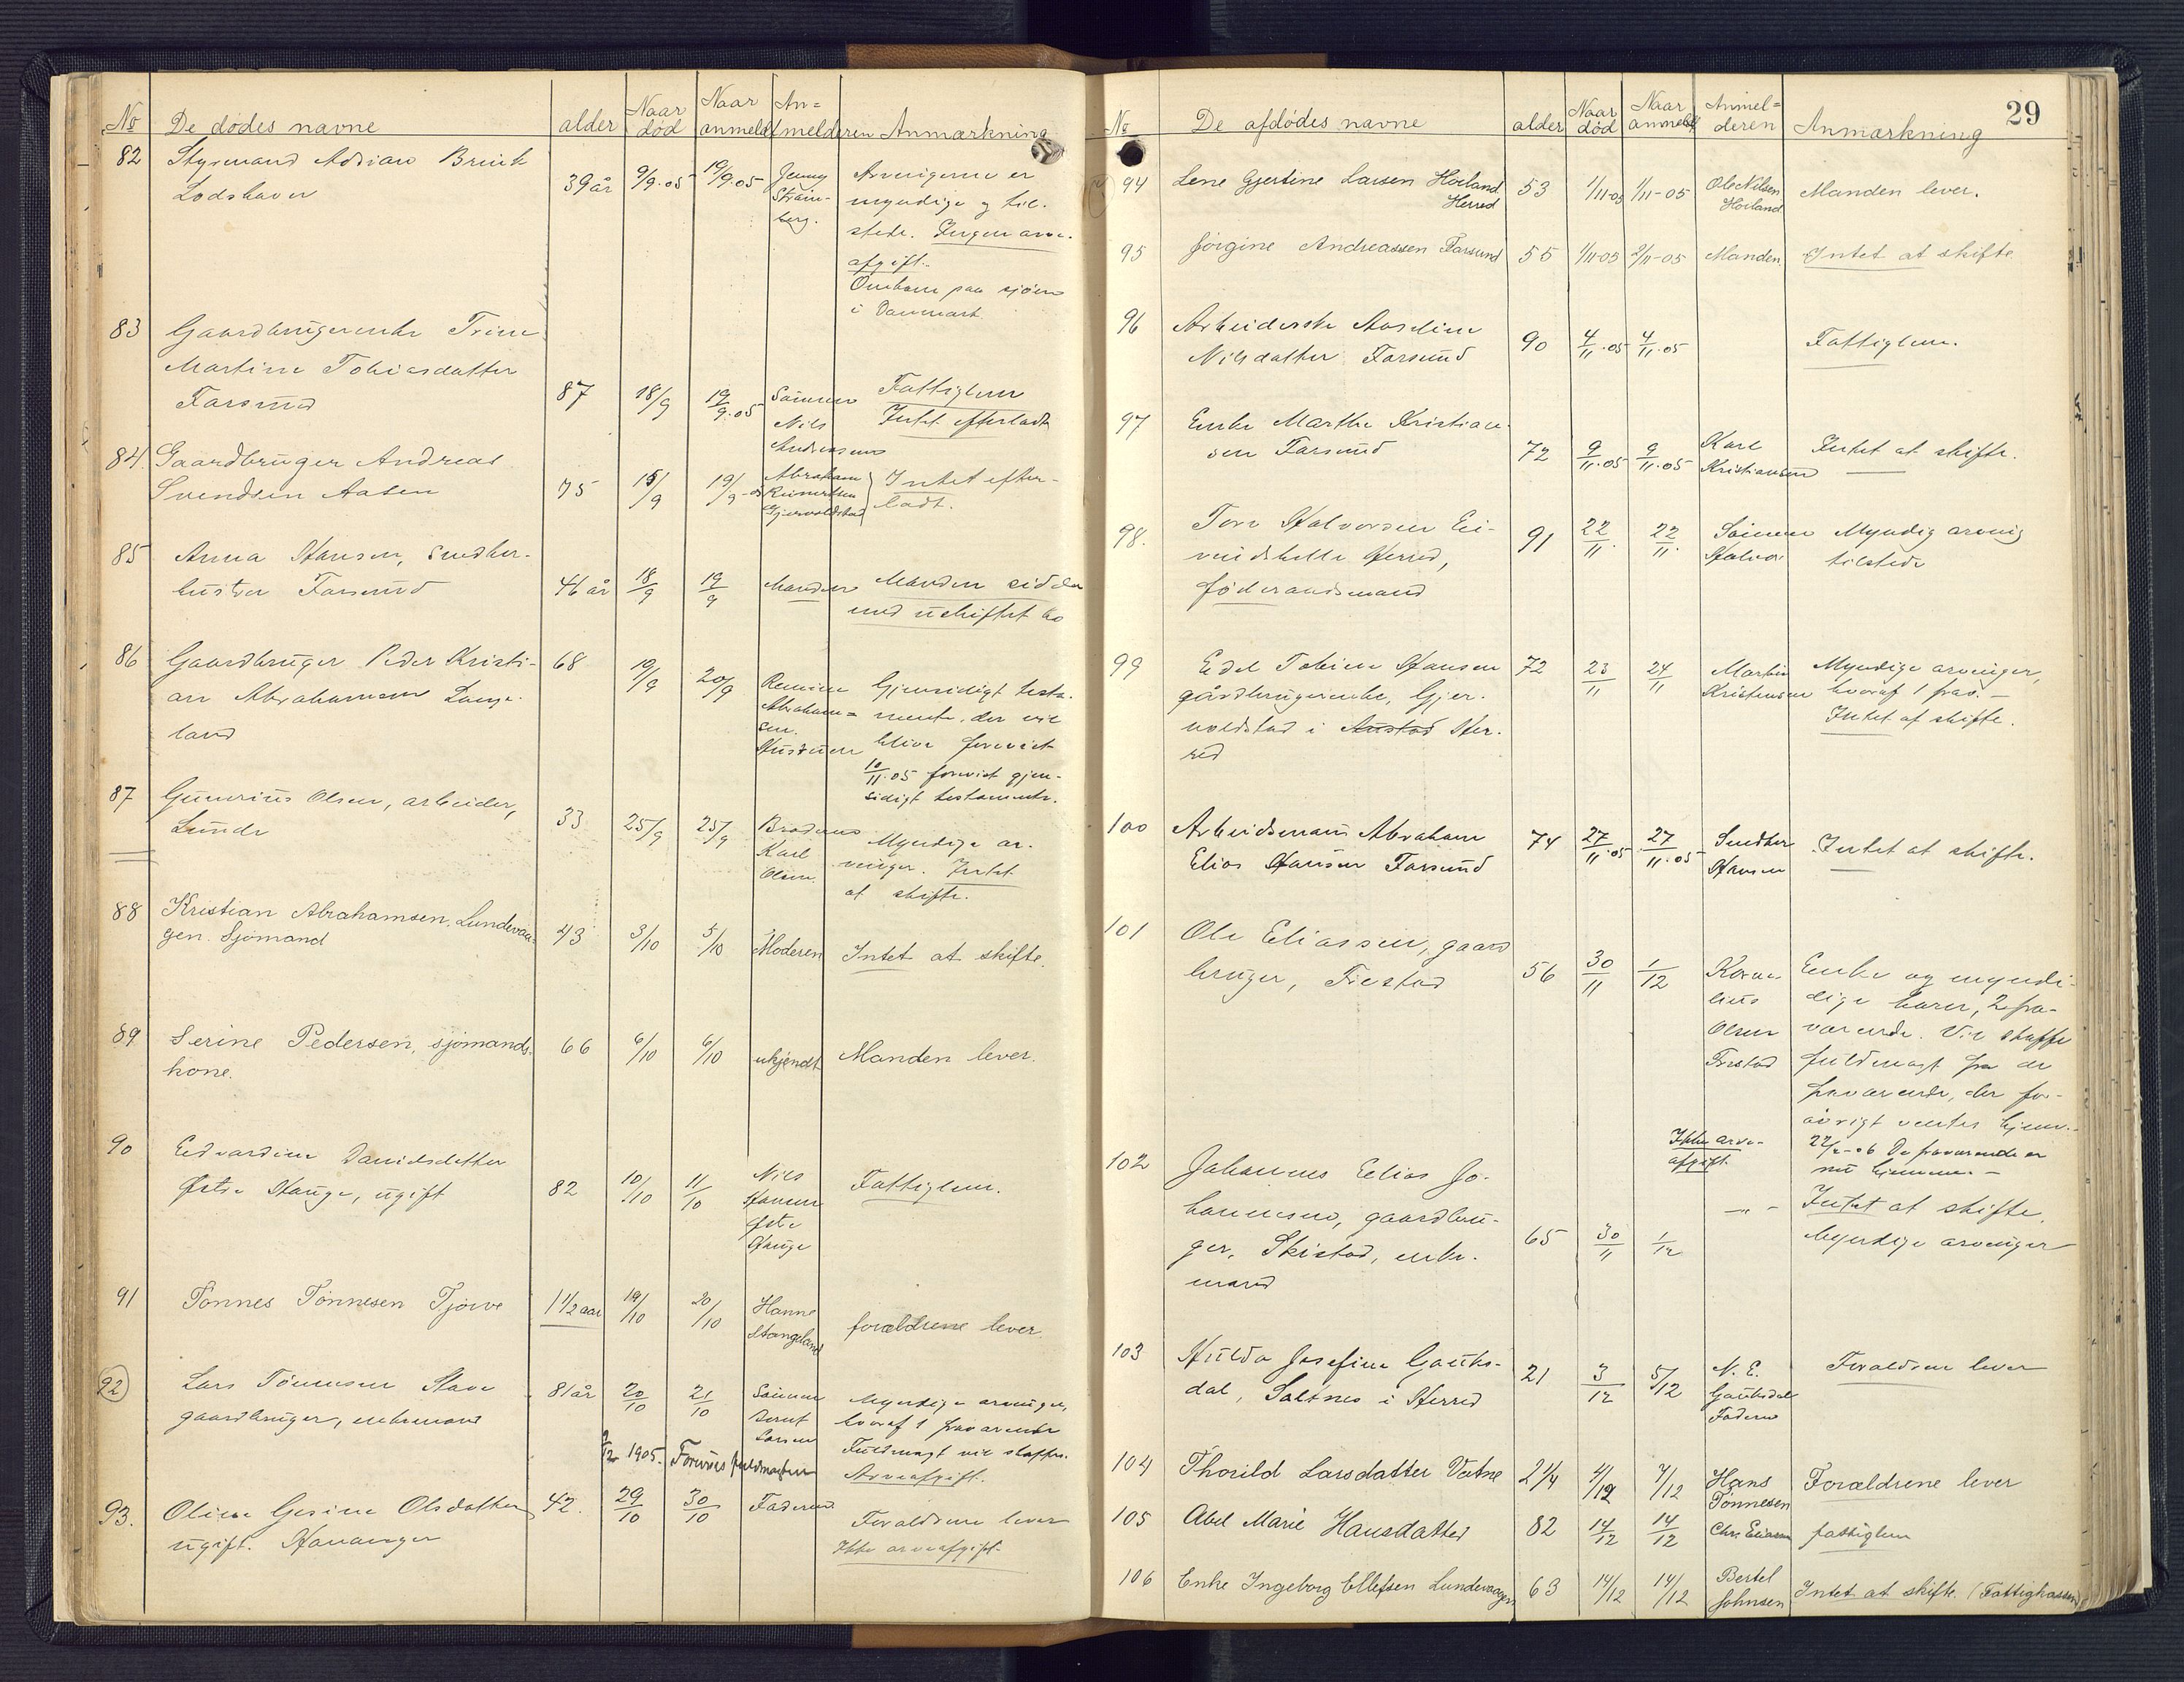 No De dødes navne alder Naar død Naar anmeldt An=melderen Anmærkning
82 Styrmand Adrian Brink
Lodshavn 39 år 9/9.05 19/9.05 Jenny
Arvingerne er
myndige og til-
stede. Ingen arve-
afgift.
Omkom paa sjøen
i Danmark
83 Gaardbrugerenke Trine
Martine Tobiasdatter
Farsund 87 18/9 19/9.05 Sønnen
Nils
Andreassen
Fattiglem
Intet efterladt
84. Gaardbruger Andreas
Svendsen Aasen 75 15/9 19/9-05 Abraham
Reinertsen
Gjervoldstad
Intet efter-
ladt.
85 Anna Hansen, snedker-
hustru Farsund 46 år 18/9 19/9 Manden
Manden sidder
med uskiftet bo
86 Gaardbruger Peder Kristi-
an Abrahamsen Lange-
land 68 19/9 20/9
Abraham=
sen.
Hustruen
Gjensidigt testa-
mente, der vil
blive forevist
10/11.05 forevist gjen-
sidigt testamente.
87 Gunerius Olsen, arbeider,
Lunde 33 25/9 25/9 Broderen
Karl
Olsen
Myndige ar-
vinger. Intet
at skifte.
88 Kristian Abrahamsen, Lundevaa-
gen. Sjømand 43 3/10 5/10 Moderen Intet at skifte.
89 Serine Pedersen, sjømands-
kone. 66 6/10 6/10 ukjendt Manden lever.
90 Edvardine Danielsdatter
Østre Hauge, ugift 82 10/10 11/10 Nils
Hansen
Østre
Hauge
Fattiglem.
91 Tønnes Tønnesen Tjørve 1 1/2 aar 19/10 20/10 Hanne
Stangeland forældrene lever.
92 Lars Tønnesen Stave
gaardbruger, enkemand 81 år 20/10 21/10 Sønnen
Bernt
Larsen
Myndige arvinger,
hvoraf 1 fraværende
Fuldmagt vil skaffes.
Arveafgift.
9/12 1905. Forevist fuldmagten
93. Oline Gesine Olsdatter
ugift. Hananger 42. 29/10 30/10 Faderen
Forældrene lever
Ikke arveafgift.
29
No De afdødes navne alder Naar død Naar anmeldt Anmel=deren Anmærkning
94 Lene Gjertine Larsen Høiland
Herred 53 1/11-05 1/11-05 Ole Nilsen
Høiland Manden lever.
95 Jørgine Andreassen Farsund 55 1/11-05 2/11-05 Manden. Intet at skifte
96 Arbeiderske Aaseline
Nilsdatter Farsund 90 4/11.05 4/11.05 Fattiglem.
97 Enke Marthe Kristian-
sen Farsund 72 9/11.05 9/11.05 Karl
Kristiansen Intet at skifte.
98. Tore Halvorsen Ei-
vindshelle Herred,
føderaadsmand 91 22/11. 22/11. Sønnen
Halvor
Myndig arving
tilstede
99 Edel Tobine Hansen
gårdbrugerenke, Gjer-
voldstad i Austad Her-
red 72 23/11 24/11 Martin
Kristensen
Myndige arvinger,
hvoraf 1 frav. –
Intet at skifte.
100 Arbeidsmand Abraham
Elias Hansen Farsund 74 27/11.05 27/11.05 Snedker
Hansen Intet at skifte.
101 Ole Eliassen, gaard
bruger, Frestad 56 30/11 1/12 Korne-
lius
Olsen
Frestad
Enke og myndi-
dige barn, 2 fra-
værende. Vil skaffe
fuldmagt fra de
fraværende, der for-
øvrigt ventes hjem.
Ikke arve-
afgift.
22/2-06 De fraværende er
nu hjemme. –
102 Johannes Elias Jo-
hannesen, gaardbru-
ger, Skistad, enke-
mand 65 30/11 1/12 – " –
Intet at skifte.
Myndige arvinger
103 Hulda Josefine Gauks-
dal, Saltnes i Herred 21 3/12 5/12 N. E.
Gauksdal
Faderen Forældrene lever
104 Thorild Larsdatter Vatne 2 1/4 4/12 7/12 Hans
Tønnesen Forældrene lever
105 Abel Marie Hansdatter 82 14/12 14/12 Chr. Eliassen fattiglem
106 Enke Ingeborg Ellefsen Lundevaagen 63 14/12 14/12 Bertel
Johnsen Intet at skifte. (Fattigkassen)